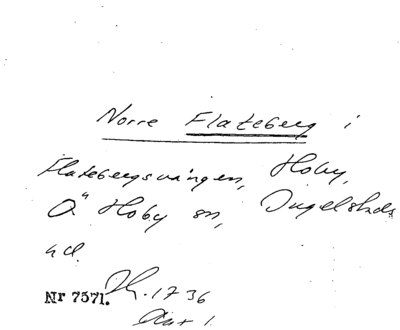 Norre Flateberg i
Flatebergsvången, Hoby,
Ö. Hoby sn, Ingelstads
hd.
Nr 7571. 1736